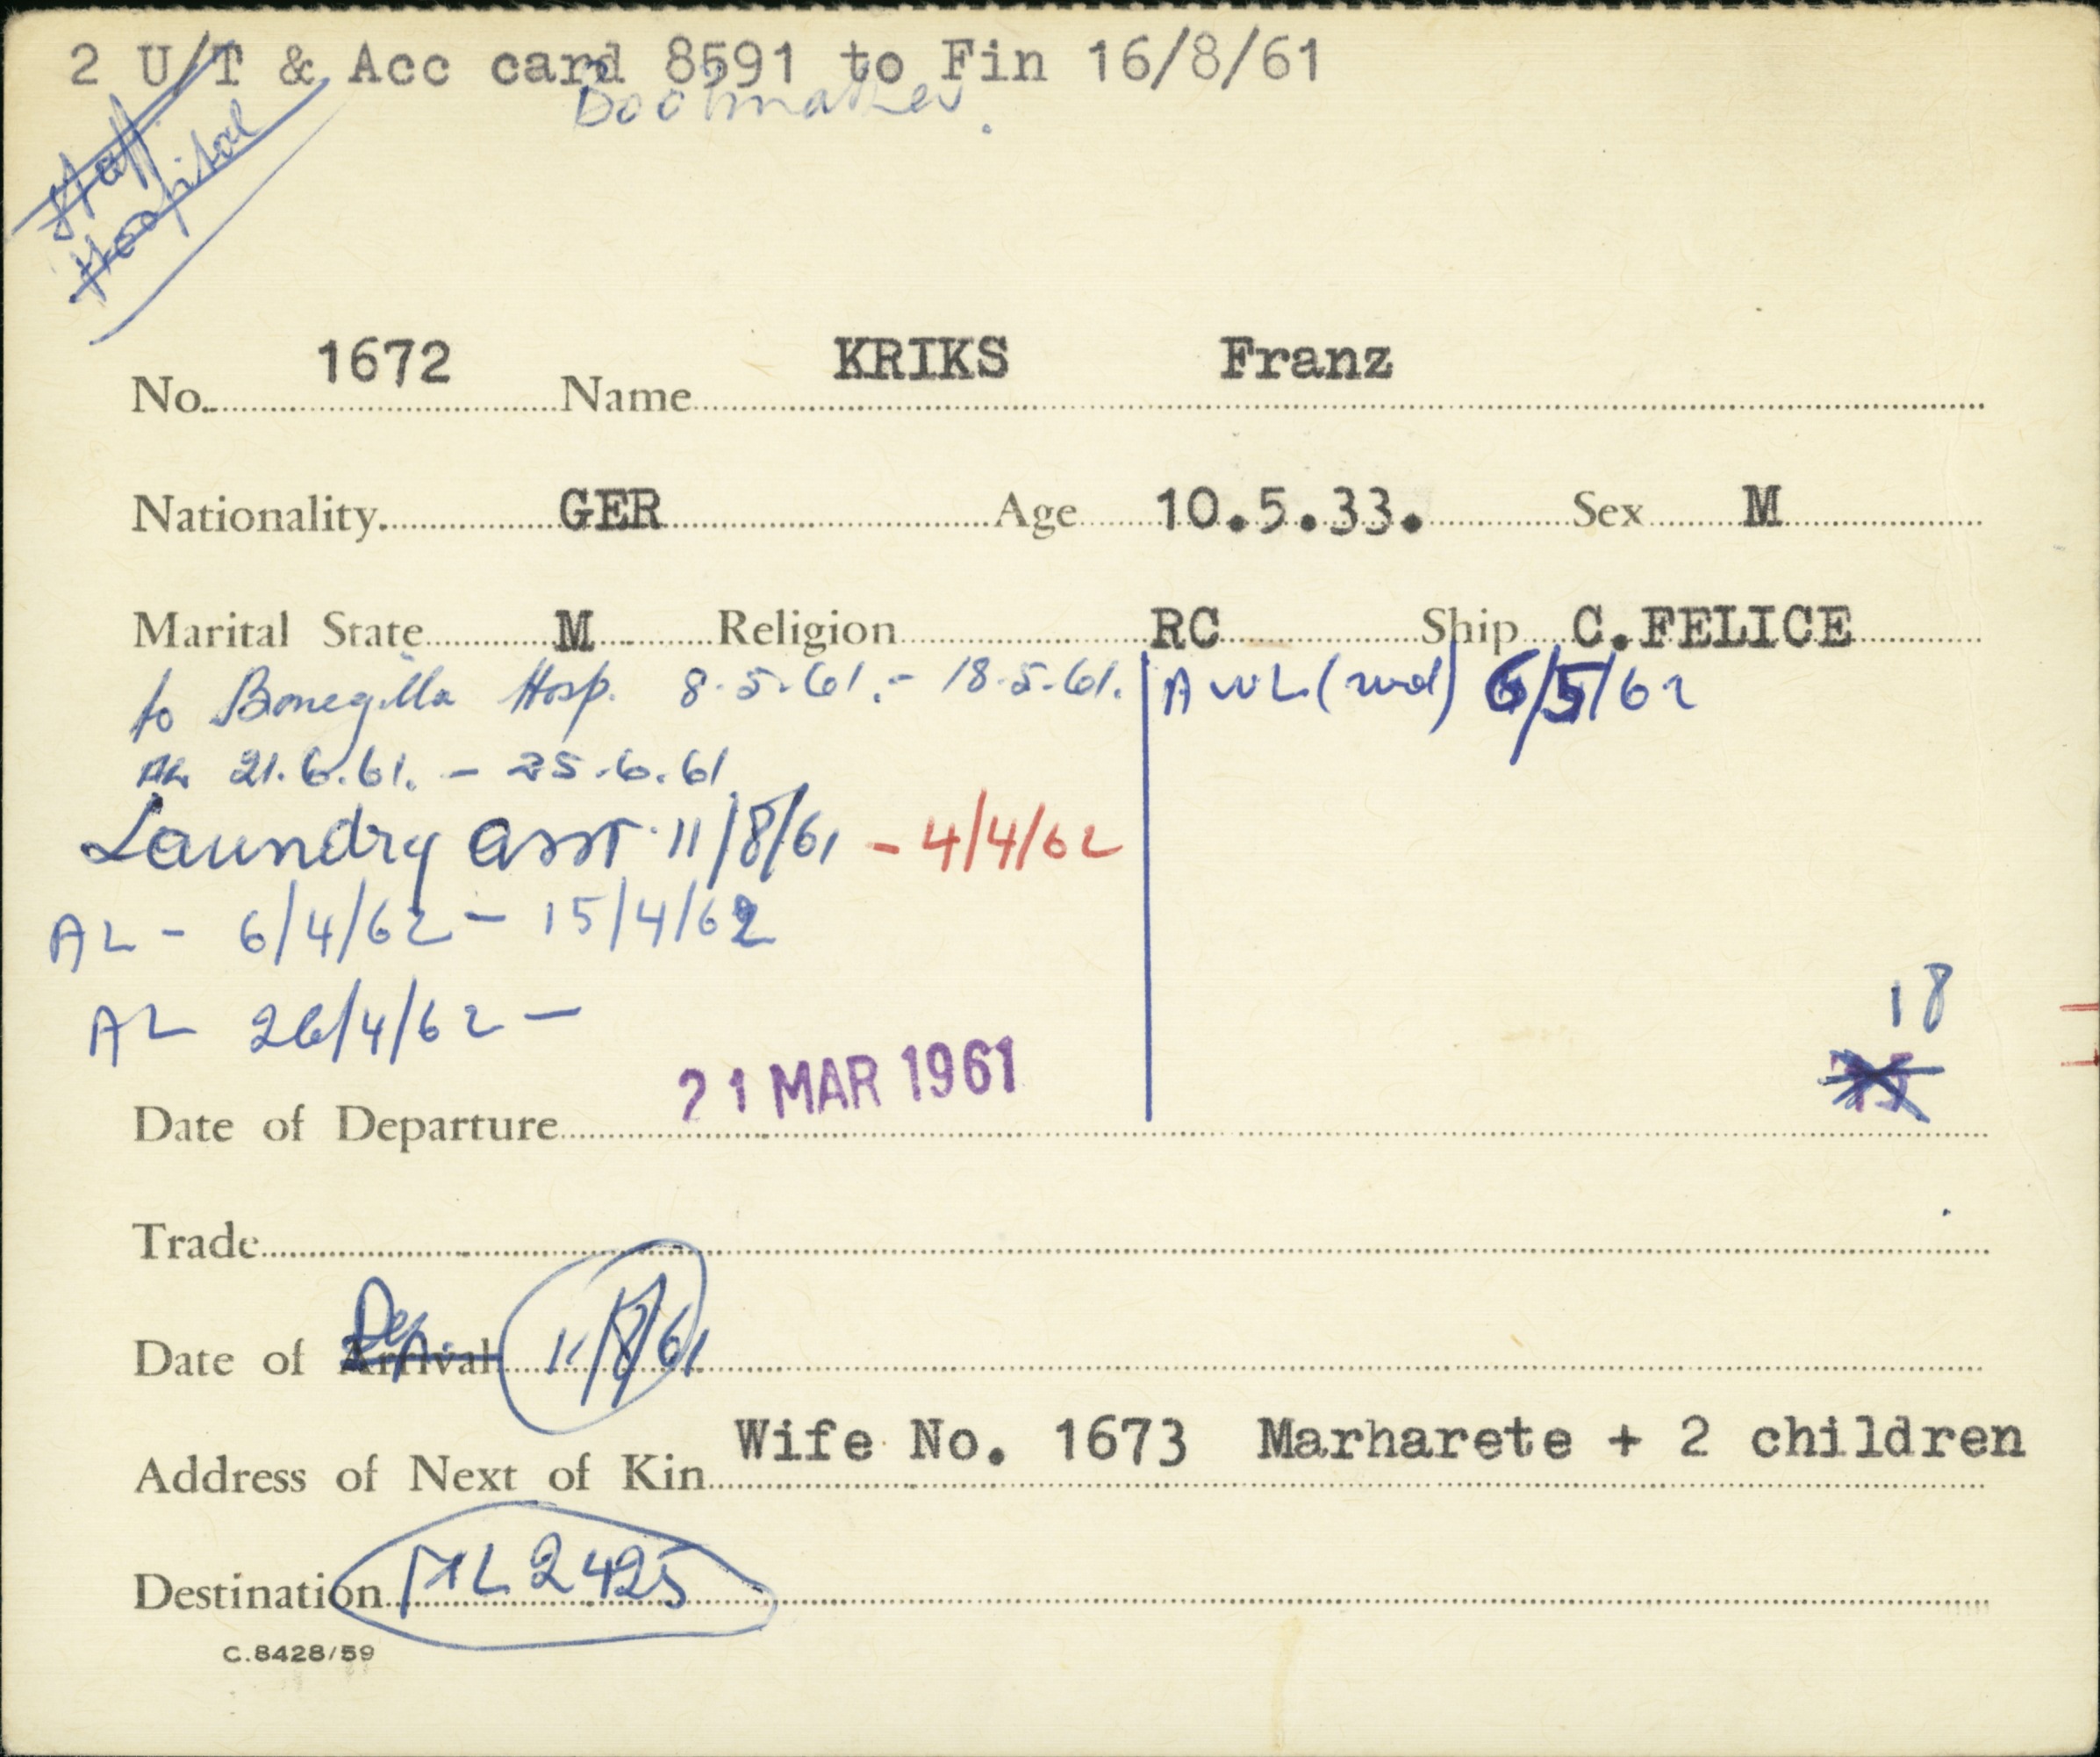 2 U/T & Acc card 8591 to Fin 16/8/61
Bootmaker.
Staff
Hospital
No. 1672 Name KRIKS Franz
Nationality. GER Age 10.5.33. Sex M
Marital State M Religion RC Ship C.FELICE
to Bonegilla Hosp. 8.5.61.- 18.5.61. AWL (wd) 6/5/62
21.6.61. - 25.6.61
Laundry asst. 11/8/61 - 4/4/62
AL - 6/4/62 - 15/4/62
AL 26/4/62 -
18
Date of Departure 21 MAR 1961
Trade
Date of Arrival Dep. 11/8/61
Address of Next of Kin Wife No. 1673 Marharete + 2 children
Destination ML 2425
C.8428/59